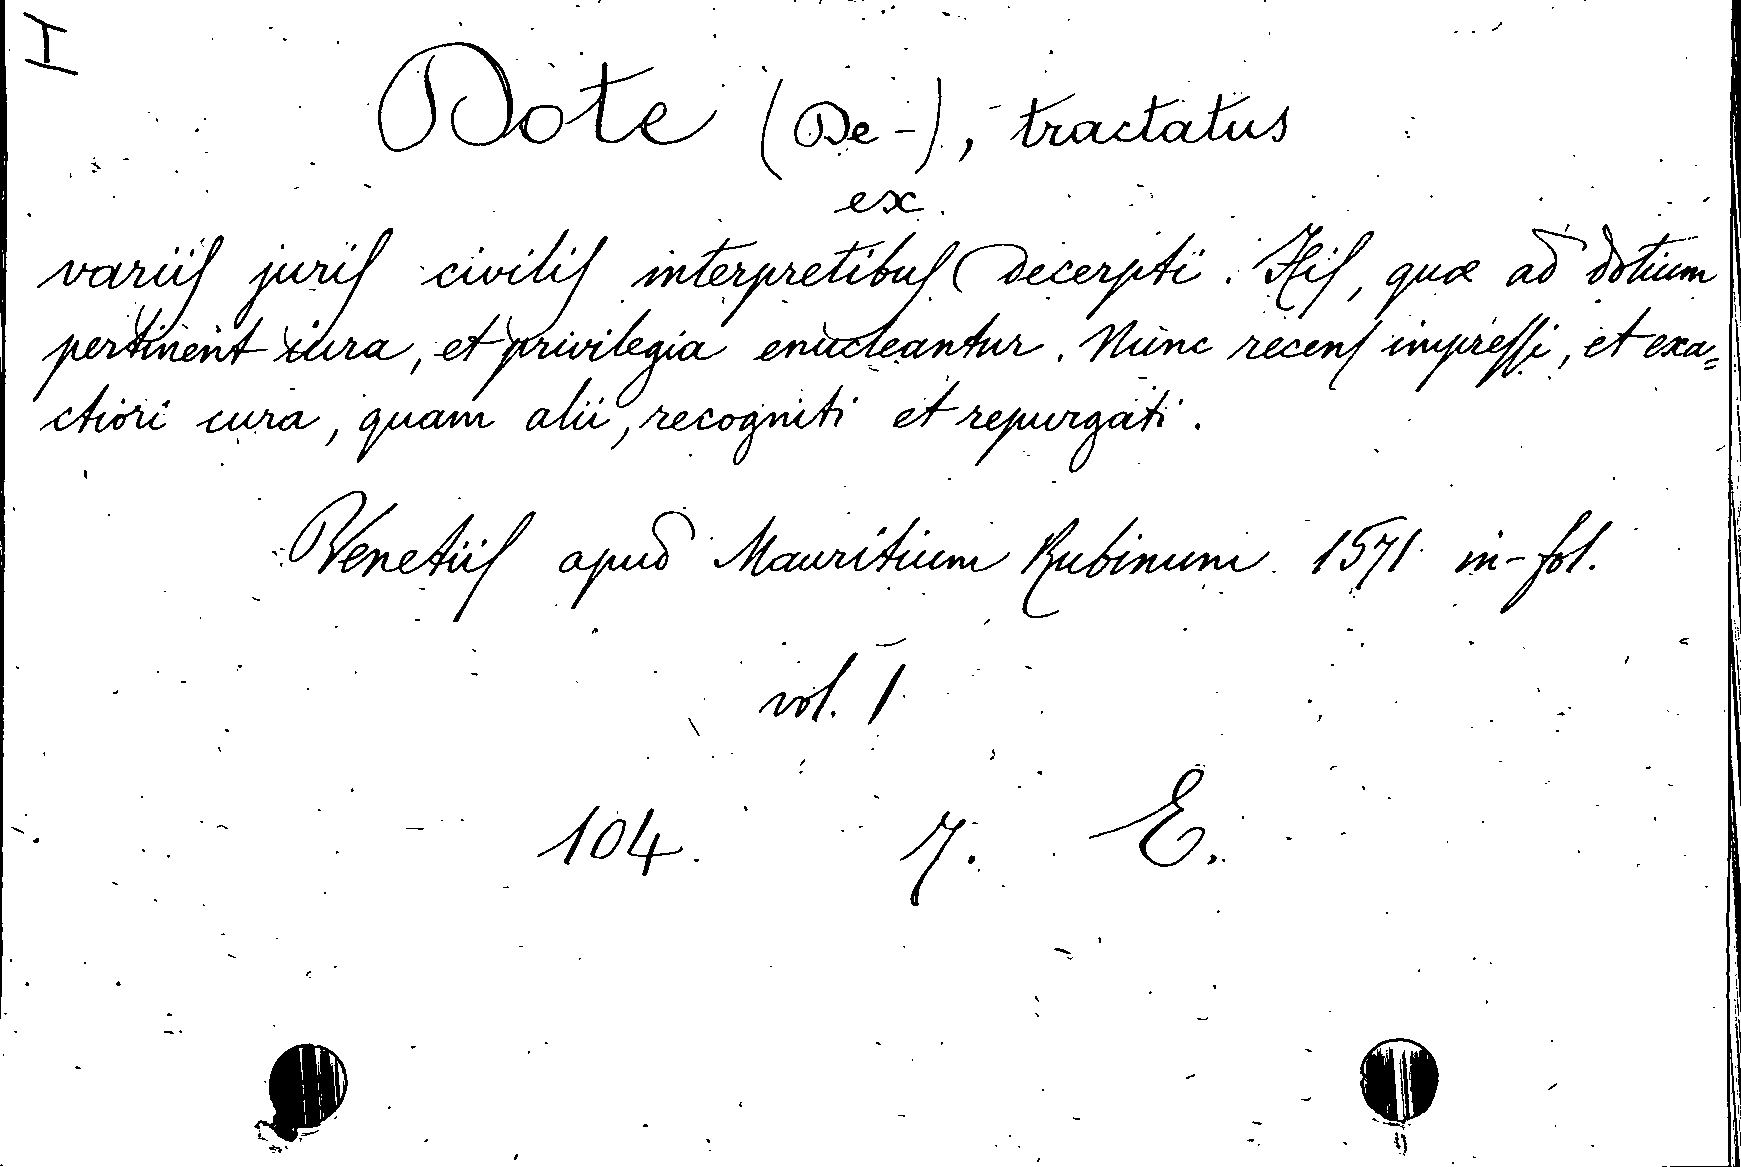 I
Dote (De-), tractatus
ex
variis juris civilis interpretibus decerpti. His, quæ ad dotium
pertinent iura, et privilegia enucleantur. Nunc recens impressi, et exa=
ctiori cura, quam alii, recogniti et repurgati.
Venetiis apud Mauritium Rubinum 1571 in-fol.
vol. 1
104. 7. E.